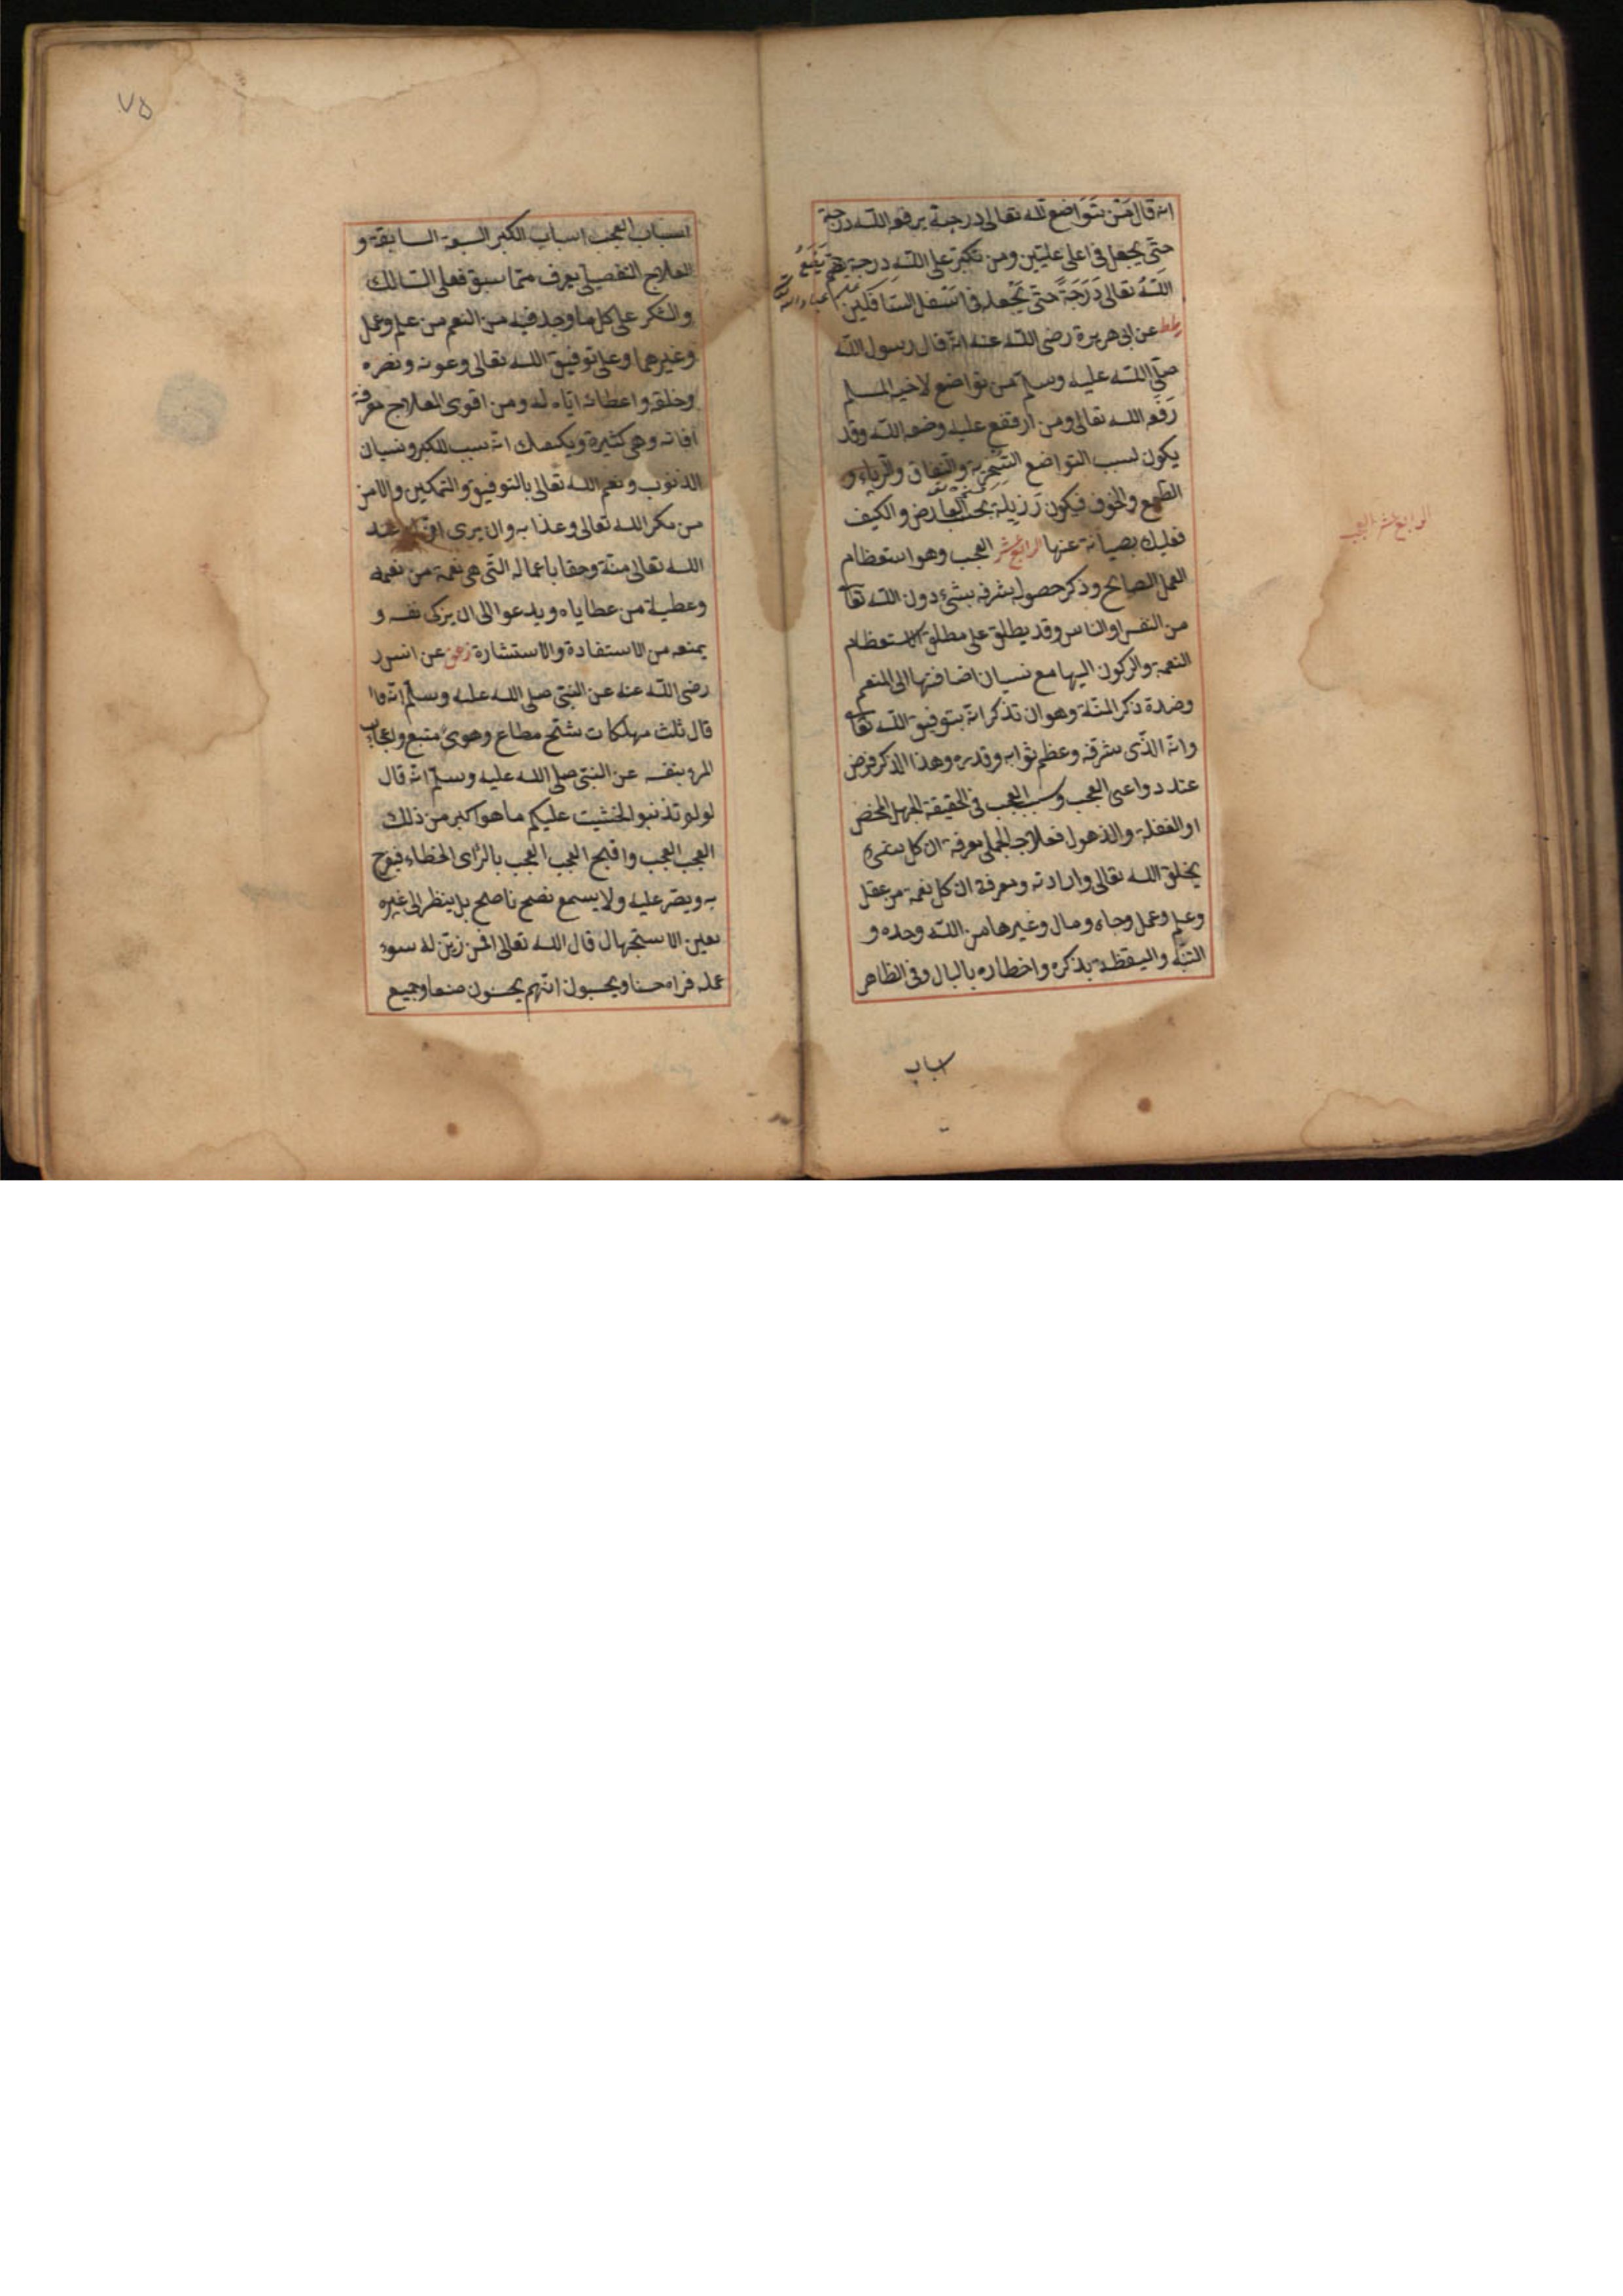 انه قال من يتواضع لله تعالى درجة يرفعه الله درجة
حتى يجعل فى اعلى عليين ومن تكبر على الله درجة يضع
الله تعالى درجة حتى يجعله فى اسفل السافلين
طط عن ابى هريرة رضى الله عنه انه قال رسول الله
صلى الله عليه وسلم من تواضع لاخيه المسلم
رفعه الله تعالى ومن ارتفع عليه وضعه الله وقد
يكون لسبب التواضع السخرية والنفاق والرياء و
الطمع والخوف فيكون رزيلة بحسب العارض والكيف
فعليك بصيانة عنها الرابع عشر العجب وهو استعظام
العمل الصالح وذكر حصول شرفه بشئ دون الله تعا
من النفس او الناس وقد يطلق على مطلق الاستعظام
النعمة والركون اليها مع نسيان اضافتها الى المنعم
وضده ذكر المنة وهو ان تذكر انه بتوفيق الله تعا
وانه الذى شرفه وعظم ثوابه وقدره وهذا الذكر فرض
عند دواعى العجب وسبب العجب فى الحقيقة الجهل المحض
او الغفلة والذهول فعلاجه الجملى معرفة ان كل شئ
يخلق الله تعالى وارادته ومعرفة ان كل نعمة من عقل
وعلم وعمل وجاه ومال وغيرها من الله وحده و
التنبه واليقظة بذكره واخطاره بالبال وفى الظاهر
اسباب
الرابع عشر العجب
٧٥
اسباب العجب اسباب الكبر السبعة السابقة و
العلاج التفصيلى يعرف مما سبق فعلى السالك
والشكر على كل ما وجد فيه من النعم من علم وعمل
وغيرهما وعلى توفيق الله تعالى وعونه ونصره
وخلقه واعطائه اياه له ومن اقوى العلاج معرفة
افاته وهى كثيرة ويكفيك انه سبب للكبر ونسيان
الذنوب ونعم الله تعالى بالتوفيق والتمكين والامن
من مكر الله تعالى وعذابه وان يرى ان له عند
الله تعالى منة وحقا باعماله التى هى نعمة من نعمه
وعطية من عطاياه ويدعوا الى ان يزكى نفسه و
يمنعه من الاستفادة والاستشارة زعن عن انس
رضى الله عنه عن النبى صلى الله عليه وسلم انه
قال ثلث مهلكات شح مطاع وهوى متبع واعجاب
المرء بنفسه عن النبى صلى الله عليه وسلم انه قال
لو لم تذنبوا لخشيت عليكم ما هو اكبر من ذلك
العجب العجب واقبح العجب العجب بالراى الخطاء فيفرح
به ويصر عليه ولا يسمع نصح ناصح بل ينظر الى غيره
بعين الاستجهال قال الله تعالى افمن زين له سوء
عمله فراه حسنا ويحسبون انهم يحسنون صنعا وجميع